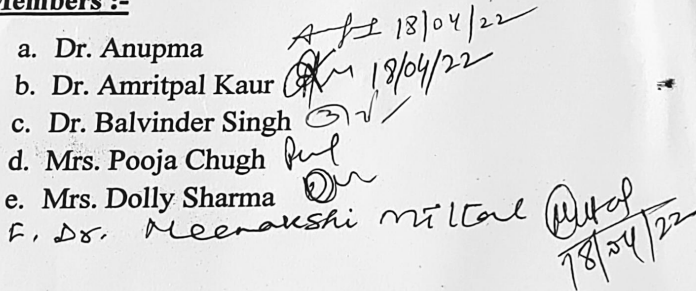 Members :-
a. Dr. Anupma 18/04/22
b. Dr. Amritpal Kaur 18/04/22
c. Dr. Balvinder Singh
d. Mrs. Pooja Chugh
e. Mrs. Dolly Sharma
F. Dr. Meenakshi mittal
18/04/22